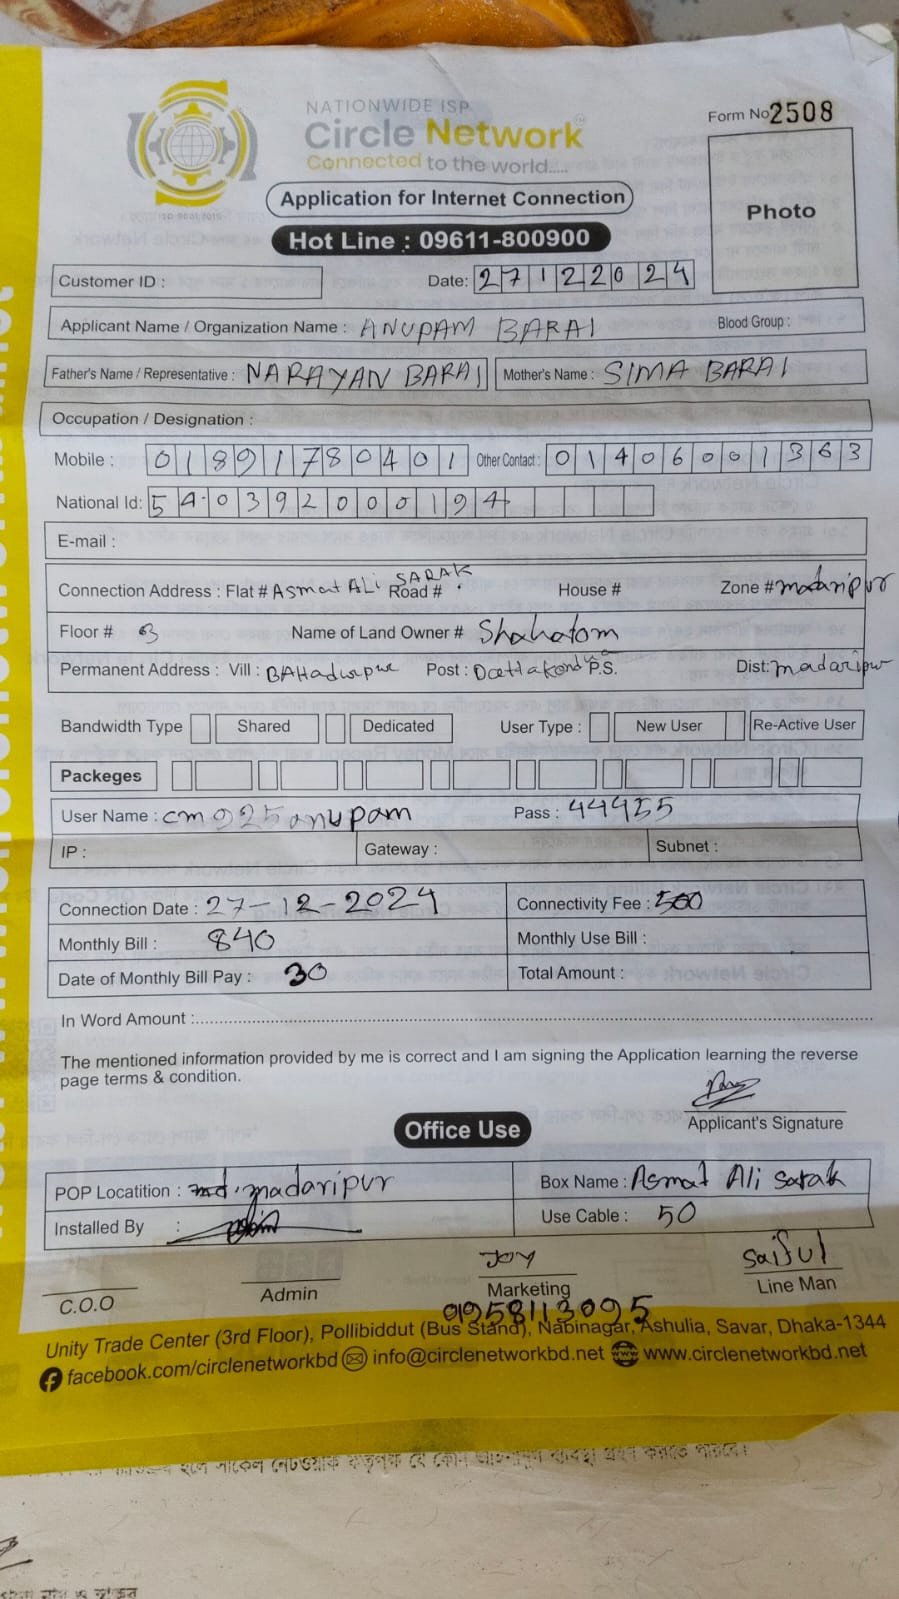 NATIONWIDE ISP
Circle Network
Connected to the world.....
Form No 2508
Photo
Application for Internet Connection
Hot Line : 09611-800900
Customer ID :
Date: 27122024
Applicant Name / Organization Name : ANUPAM BARAI Blood Group :
Father's Name / Representative : NARAYAN BARAI Mother's Name : SIMA BARAI
Occupation / Designation :
Mobile : 01891780401 Other Contact : 01406001363
National Id: 5403920000194
E-mail :
Connection Address : Flat # Asmat ALi SARAK Road # House # Zone # madaripur
Floor # 3 Name of Land Owner # Shahatom
Permanent Address : Vill : BAHadurpur Post : P.S. Dist: madaripur
Bandwidth Type Shared Dedicated User Type : New User Re-Active User
Packeges
User Name : cm925anupam Pass : 44455
IP : Gateway : Subnet :
Connection Date : 27-12-2024 Connectivity Fee : 500
Monthly Bill : 840 Monthly Use Bill :
Date of Monthly Bill Pay : 30 Total Amount :
In Word Amount :
The mentioned information provided by me is correct and I am signing the Application learning the reverse
page terms & condition.
Applicant's Signature
Office Use
POP Locatition : madaripur Box Name : Asmat Ali Sarak
Installed By : Use Cable : 50
C.O.O Admin JOY Marketing saiful Line Man
01958113095
Unity Trade Center (3rd Floor), Pollibiddut (Bus Stand), Nabinagar, Ashulia, Savar, Dhaka-1344
facebook.com/circlenetworkbd info@circlenetworkbd.net www.circlenetworkbd.net